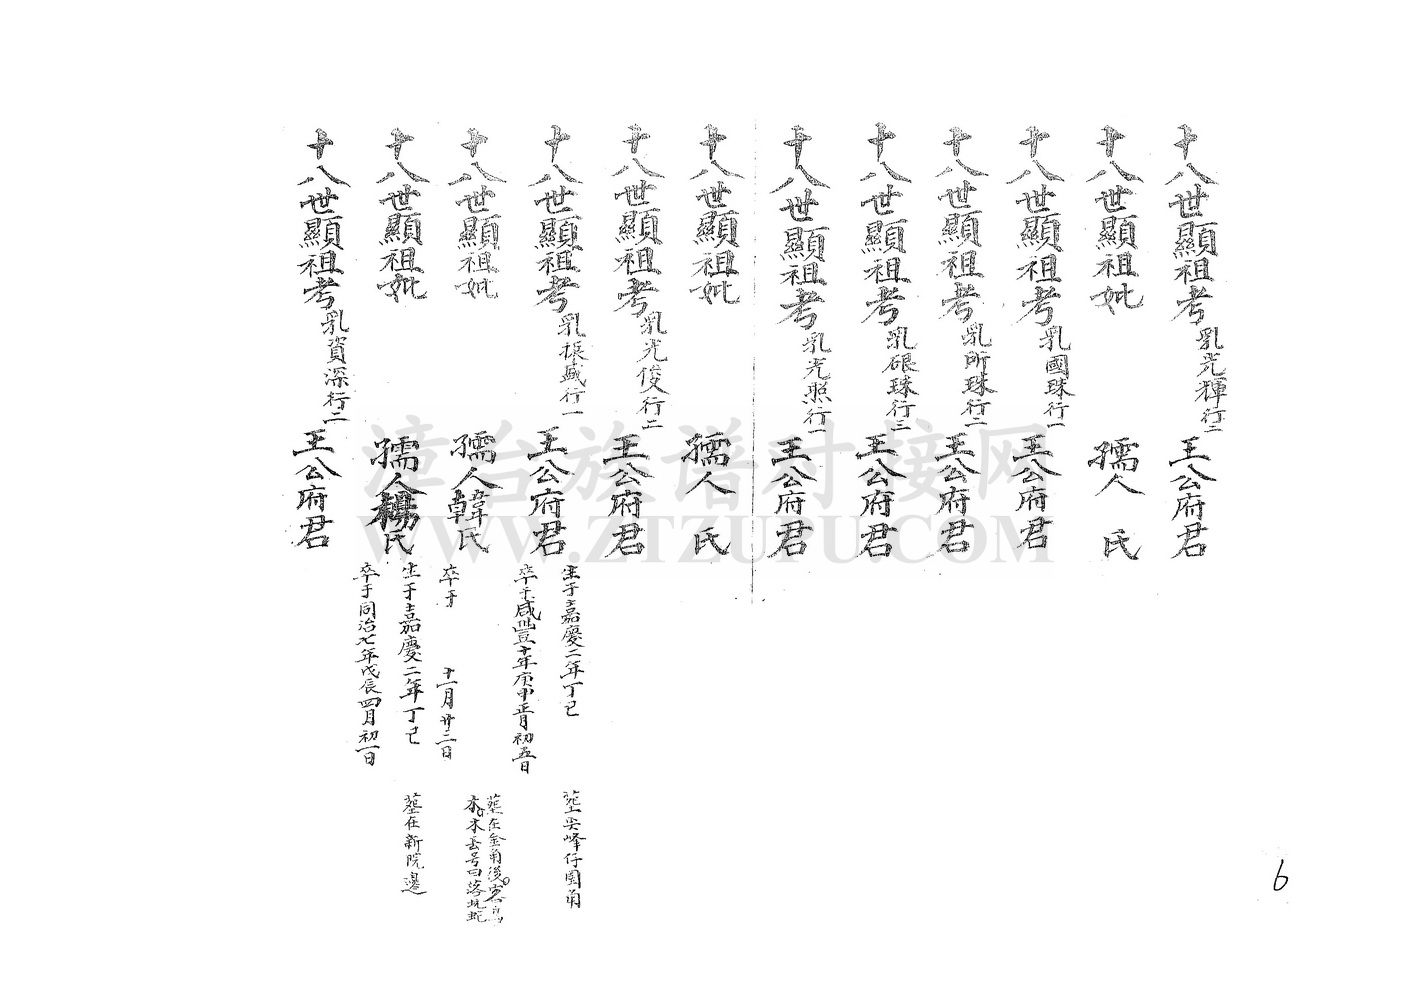 十八世顯祖考乳光輝行二王公府君
十八世顯祖妣 孺人 氏
十八世顯祖考乳國珠行一王公府君
十八世顯祖考乳所珠行二王公府君
十八世顯祖考乳硍珠行三王公府君
十八世顯祖考乳光照行一王公府君
十八世顯祖妣 孺人 氏
十八世顯祖考乳光俊行二王公府君
十八世顯祖考乳振盛行一王公府君 生于嘉慶二年丁巳 葬尖峰仔園角
卒于咸豐十年庚申正月初五日
十八世顯祖妣 孺人韓氏 卒于 十一月廿三日 葬在金角後
木 号曰落
十八世顯祖妣 孺人楊氏 生于嘉慶二年丁巳 葬在新院邊
卒于同治七年戊辰四月初一日
十八世顯祖考乳資深行二王公府君
6
漳台族谱对接网
WWW.ZTZUPU.COM